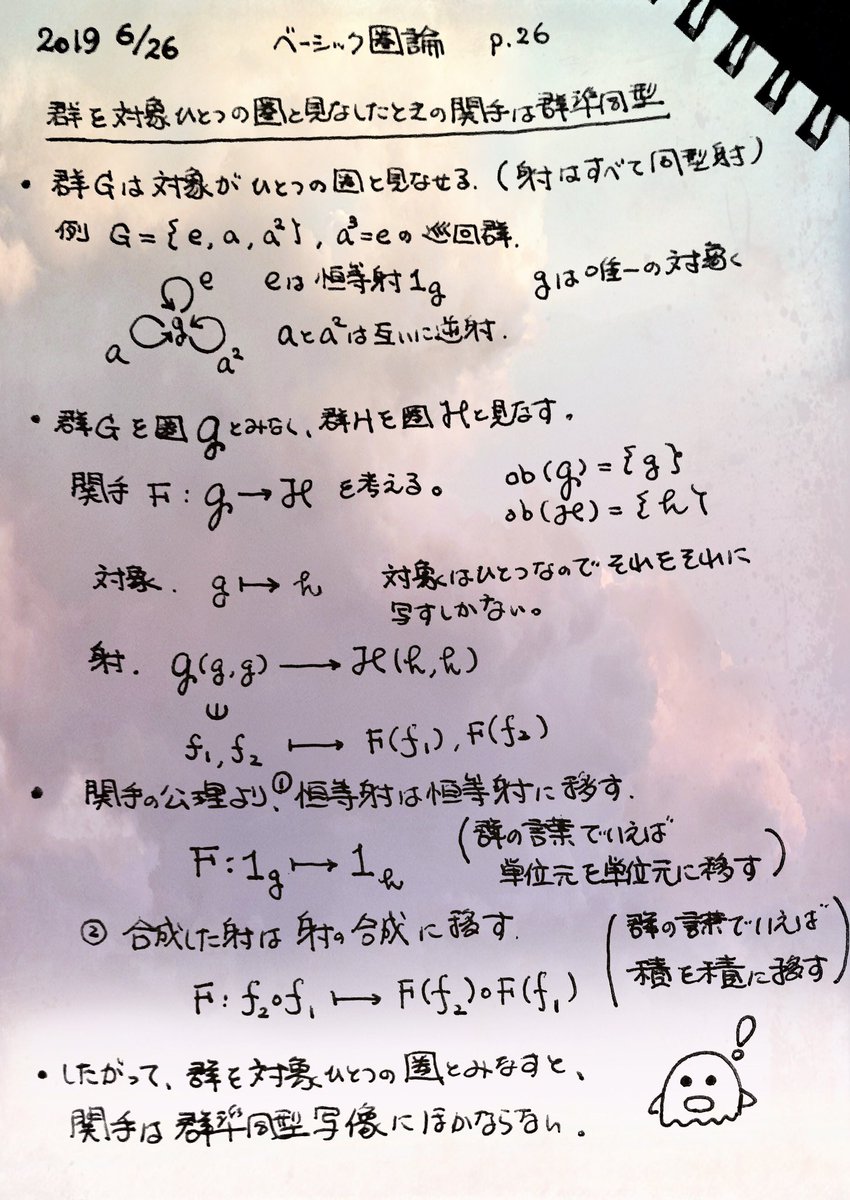 2019 6/26 ベーシック圏論 p.26
群を対象ひとつの圏と見なしたときの関手は群準同型
• 群Gは対象がひとつの圏と見なせる. (射はすべて同型射)
例 G = {e, a, a²}, a³=e の巡回群.
e eは恒等射1g gは唯一の対象
g aとa²は互いに逆射.
a a²
• 群Gを圏𝒢とみなし、群Hを圏ℋと見なす。
関手 F : 𝒢 → ℋ を考える。 ob(𝒢) = {g}
ob(ℋ) = {h}
対象. g ↦ h 対象はひとつなのでそれをそれに
写すしかない。
射. 𝒢(g,g) ⟶ ℋ(h,h)
∈
f₁, f₂ ⟼ F(f₁), F(f₂)
• 関手の公理より、① 恒等射は恒等射に移す.
F : 1g ⟼ 1h (群の言葉でいえば
単位元を単位元に移す)
② 合成した射は射の合成に移す. (群の言葉でいえば
積を積に移す)
F : f₂∘f₁ ⟼ F(f₂)∘F(f₁)
!
• したがって、群を対象ひとつの圏とみなすと、
関手は群準同型写像にほかならない。